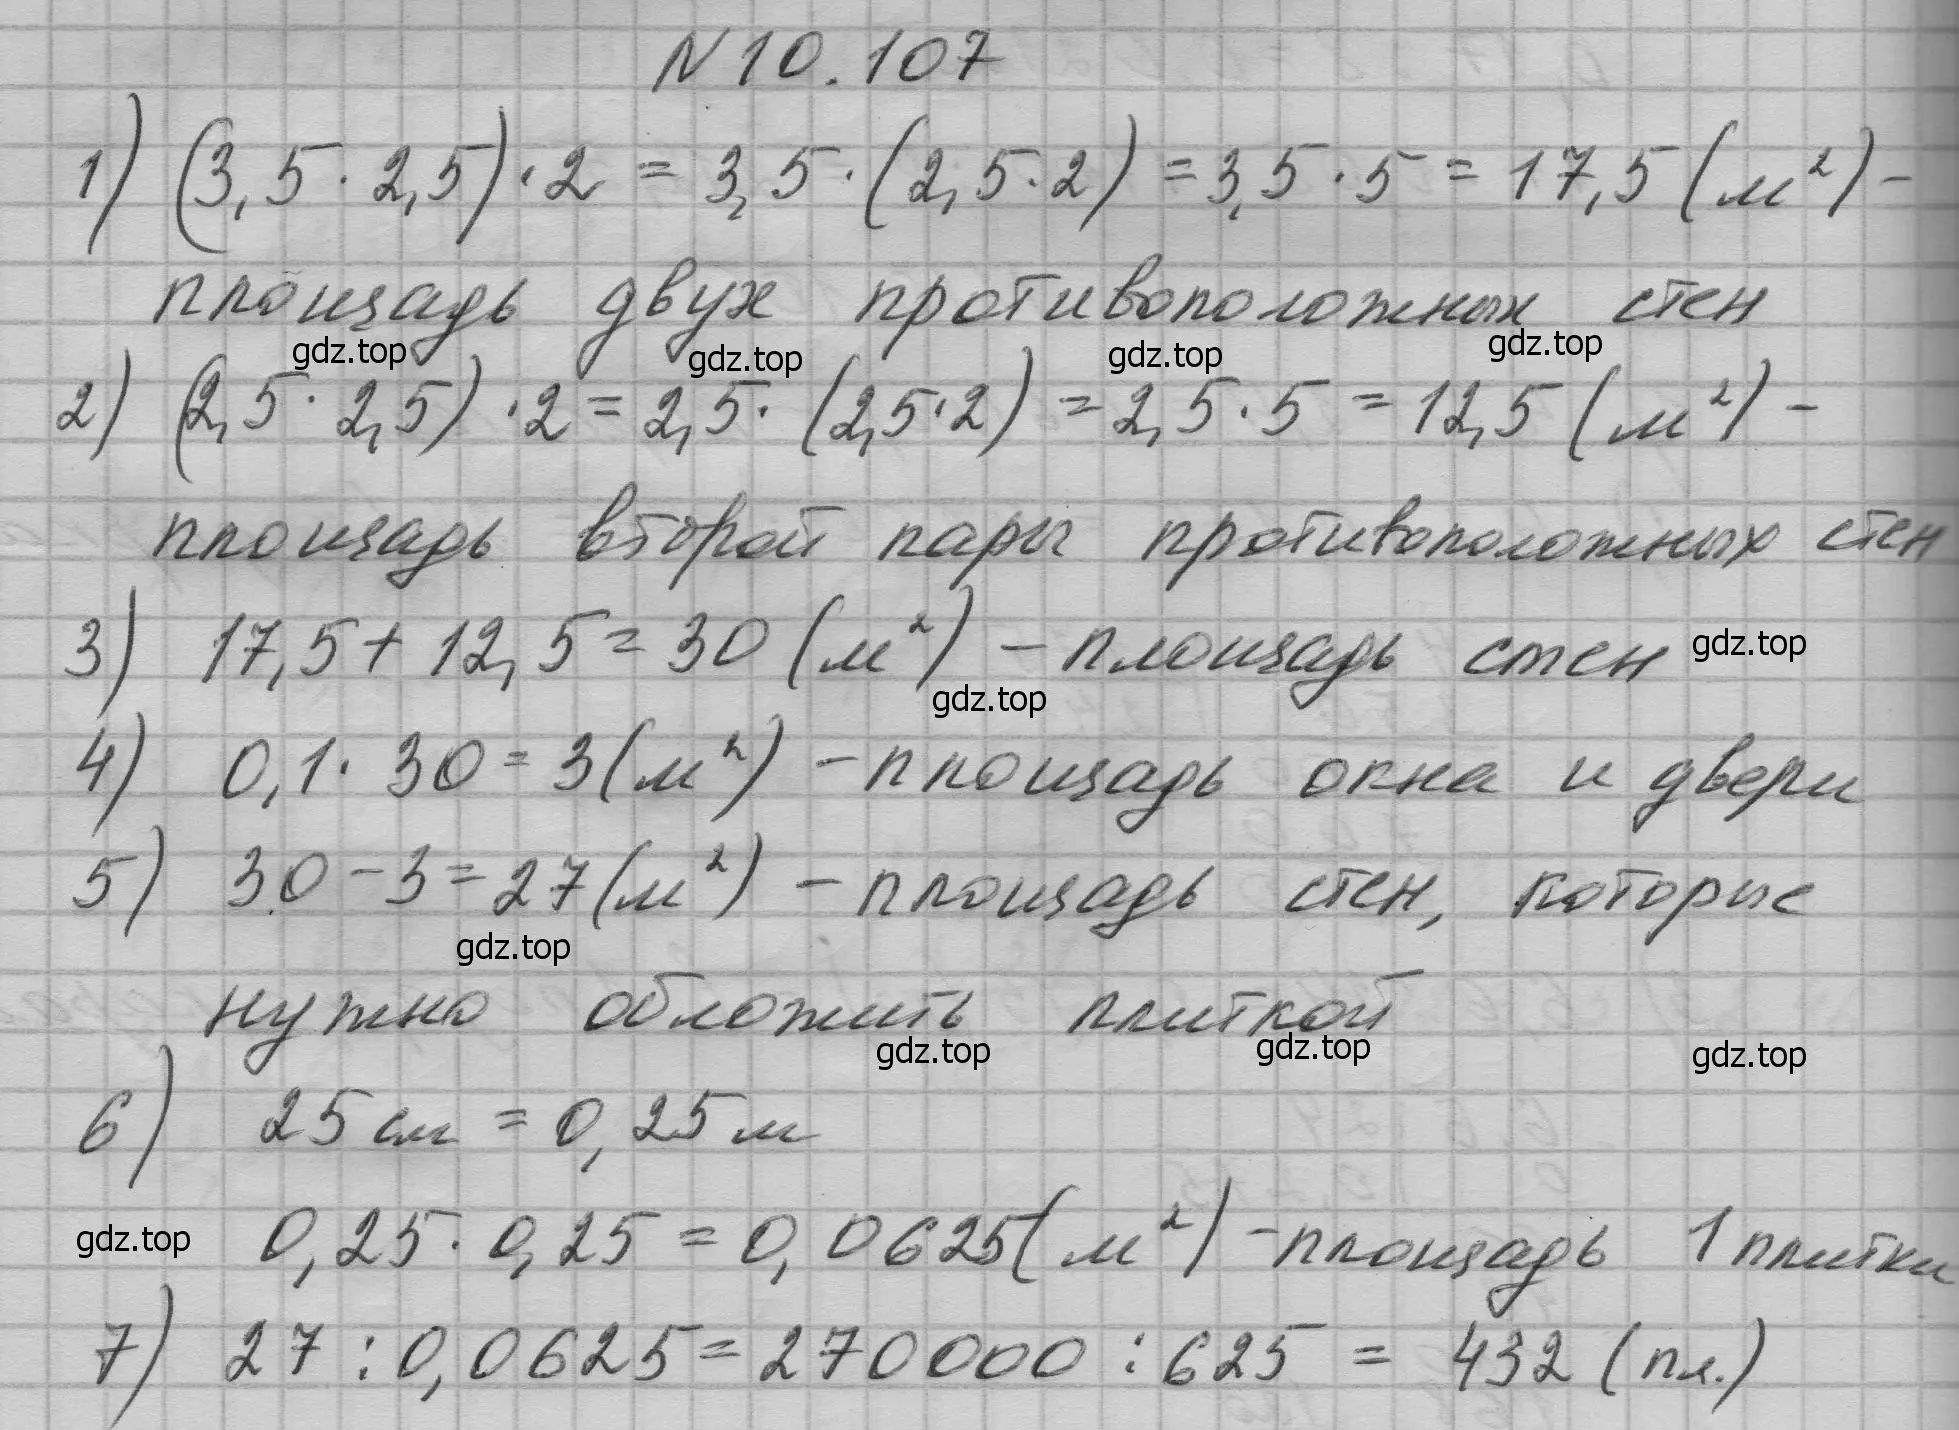 N 10.107
1) (3,5 · 2,5) · 2 = 3,5 · (2,5 · 2) = 3,5 · 5 = 17,5 (м²) –
площадь двух противоположных стен
gdz.top gdz.top gdz.top gdz.top
2) (2,5 · 2,5) · 2 = 2,5 · (2,5 · 2) = 2,5 · 5 = 12,5 (м²) –
площадь второй пары противоположных стен
3) 17,5 + 12,5 = 30 (м²) – площадь стен gdz.top
gdz.top
4) 0,1 · 30 = 3 (м²) – площадь окна и двери
5) 30 – 3 = 27 (м²) – площадь стен, которые
gdz.top
нужно обложить плиткой
gdz.top gdz.top gdz.top
6) 25 см = 0,25 м
gdz.top 0,25 · 0,25 = 0,0625 (м²) – площадь 1 плитки
7) 27 : 0,0625 = 270000 : 625 = 432 (пл.)